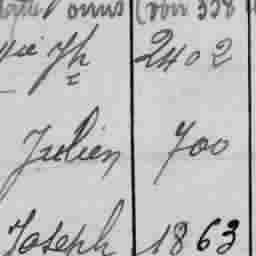 Jh 2402
Julien 700
Joseph 1863